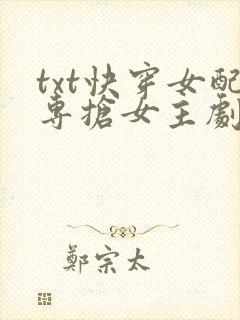 txt快穿女配
專搶女主劇
鄭宗太